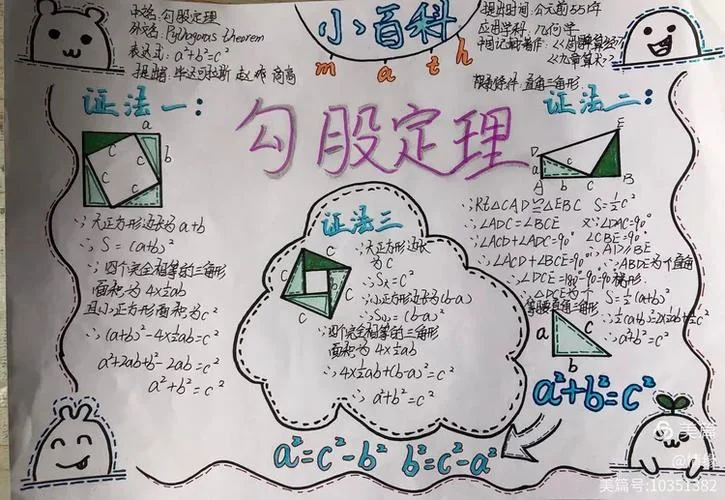 中文名: 勾股定理
外文名: Pythagoras theorem
表达式: a²+b²=c²
提出者: 毕达哥拉斯 赵爽 商高
小百科
math
提出时间: 公元前551年
应用学科: 几何学
中国记载著作: 《周髀算经》
《九章算术》
限制条件: 直角三角形
勾股定理
证法一:
a
b
c
c
c
c
∵大正方形边长为a+b
∴S=(a+b)²
∵四个完全相等的三角形
面积为4×½ab
且小正方形面积为c²
∴(a+b)²-4×½ab=c²
a²+2ab+b²-2ab=c²
a²+b²=c²
证法三
c
c
c
c
∵大正方形边长
为c
∴S大=c²
∵小正方形边长(b-a)
∴S小=(b-a)²
∵四个完全相等的三角形
面积为4×½ab
∴4×½ab+(b-a)²=c²
∴a²+b²=c²
证法二:
D
E
a
c
c
A
b
C
B
∵Rt△CAD≌△EBC S=½c²
∴∠ADC=∠BCE 又∵∠DAC=90°
∵∠ACD+∠ADC=90° ∠CBE=90°
∴∠ACD+∠BCE=90° ∴AD∥BE
∴∠DCE=180°-90°=90° ∴ABDE为一个直角
梯形
∴△DCE为一个
等腰直角三角形
S=½(a+b)²
∴½(a+b)²=2×½ab+½c²
∴a²+b²=c²
a
c
b
a²+b²=c²
a²=c²-b² b²=c²-a²
美篇
美篇号:10351382